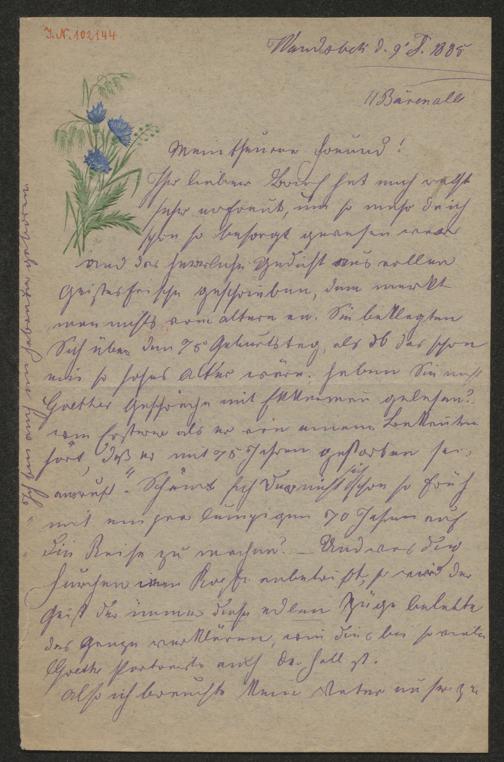 I.N. 102144
Wandsbek d. 9' 1885
11 Bärenallee
Mein theurer Freund!
Ihr lieber Brief hat mich recht
sehr erfreut, um so mehr da ich
schon so besorgt gewesen war
und das herrliche Gedicht aus voller
Geistesfrische geschrieben, dem merkt
man nichts vom altern an. Sie beklagten
Sich über den 75' Geburtstag, als ob das schon
ein so hohes Alter wäre. Haben Sie nicht
Goethes Gespräche mit Eckermann gelesen?
wo Ersterer als er von einem Bekannten
hört, daß er mit 75 Jahren gestorben sei,
ausruft „Schämt sich der nicht schon so früh
mit einigen lumpigen 70 Jahren auf
die Reise zu machen". – Und was die
Furchen im Kopfe anbetrifft, so wird der
Geist der immer diese edlen Züge belebte
das Ganze verklären, wie dies bei so vielen
Goethe Portraits auch der Fall ist.
Also ich brauchte Mein Vater
Ich bin auch am geboren